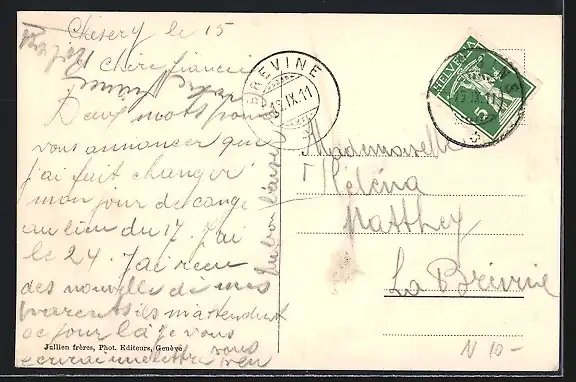 Chésery le 15
Chère fiancée
Deux mots pour
vous annoncer que
j'ai fait changer
mon jour de congé
au lieu du 17. J'ai
le 24. J'ai reçu
des nouvelle de mes
parents ils m'attendent
ce jour là je vous
écrirai une lettre
vous
Un bon baiser
BREVINE
15.IX.11
HELVETIA
5
Mademoiselle
Héléna
Matthey
La Brévine
N 10-
Jullien frères, Phot. Editeurs, Genève